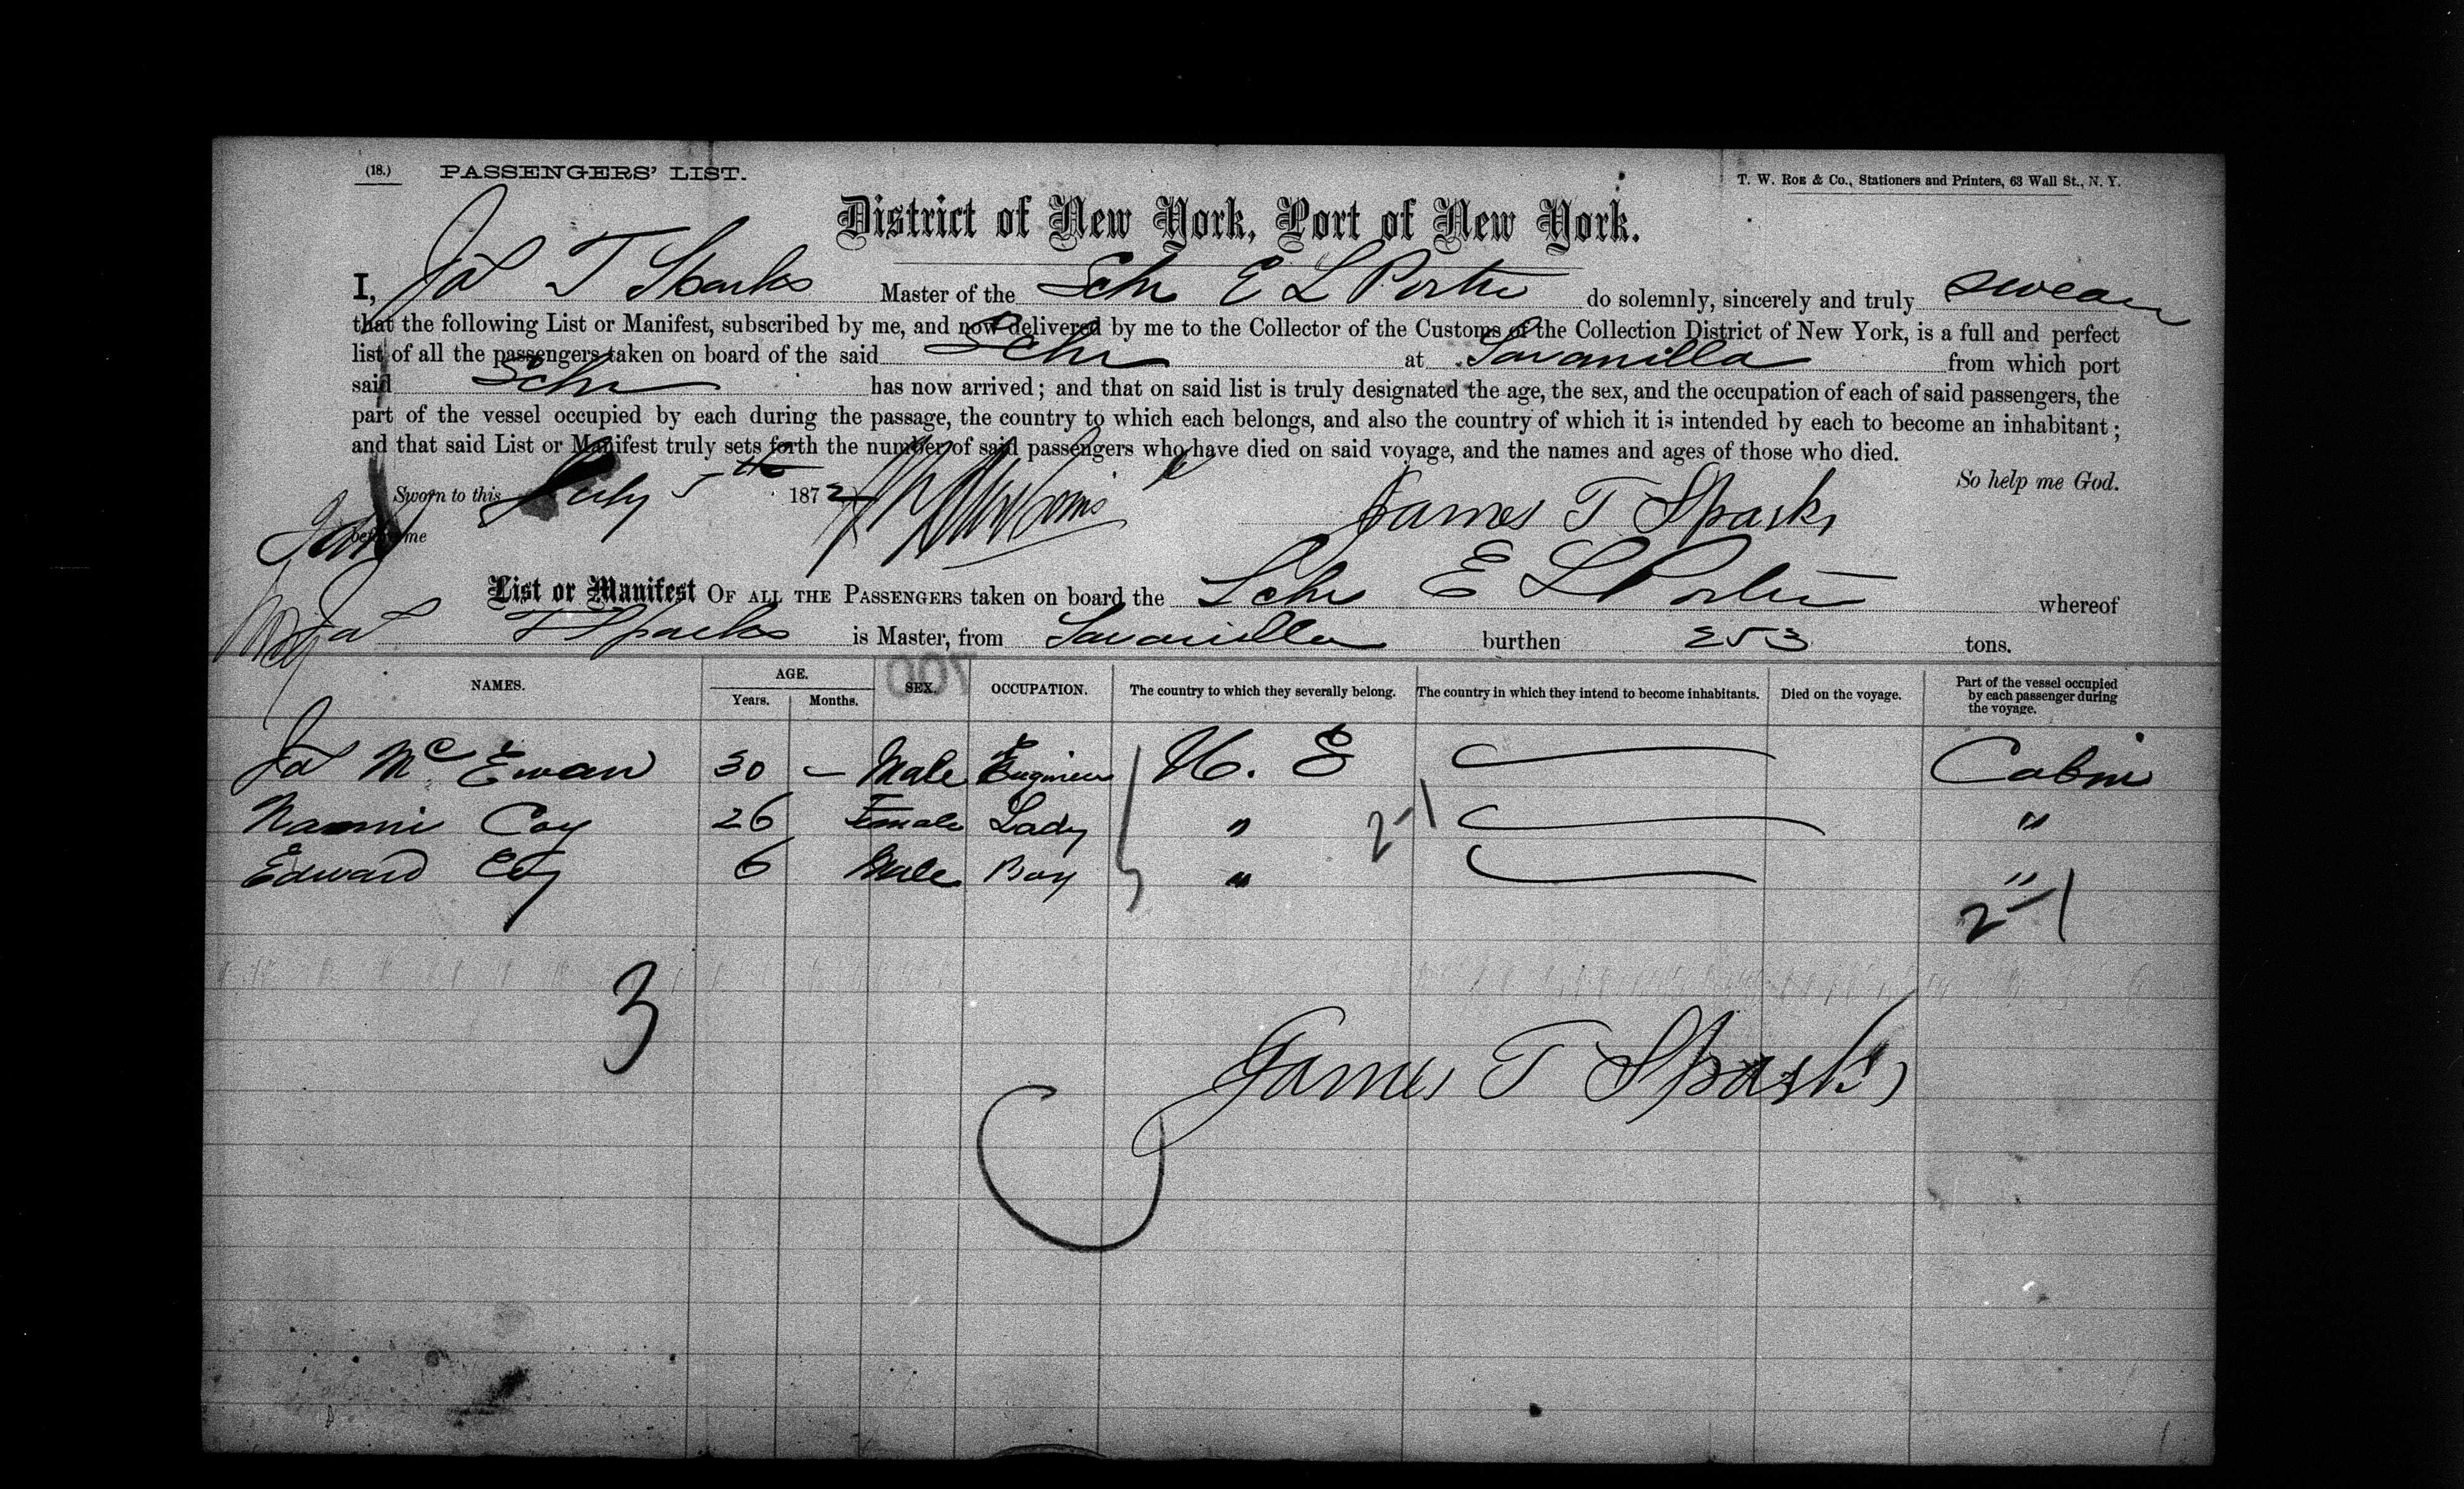 (18.) PASSENGERS' LIST.
T. W. ROE & Co., Stationers and Printers, 63 Wall St., N. Y.
District of New York, Port of New York.
I, Jas T Sparks Master of the Schr E L Porter do solemnly, sincerely and truly swear
that the following List or Manifest, subscribed by me, and now delivered by me to the Collector of the Customs of the Collection District of New York, is a full and perfect
list of all the passengers taken on board of the said Schr at Savanilla from which port
said Schr has now arrived; and that on said list is truly designated the age, the sex, and the occupation of each of said passengers, the
part of the vessel occupied by each during the passage, the country to which each belongs, and also the country of which it is intended by each to become an inhabitant;
and that said List or Manifest truly sets forth the number of said passengers who have died on said voyage, and the names and ages of those who died.
So help me God.
Sworn to this July 5th 1872
before me
James T Sparks
List or Manifest OF ALL THE PASSENGERS taken on board the Schr E L Porter whereof
Jas T Sparks is Master, from Savanilla burthen 253 tons.
NAMES. AGE. Years. Months. SEX. OCCUPATION. The country to which they severally belong. The country in which they intend to become inhabitants. Died on the voyage. Part of the vessel occupied by each passenger during the voyage.
Jas McEwan 30 – Male Engineer Cabin
Nannie Coy 26 Female Lady " 2-1 "
Edward Coy 6 Male Boy " "
2-1
3
James T Sparks